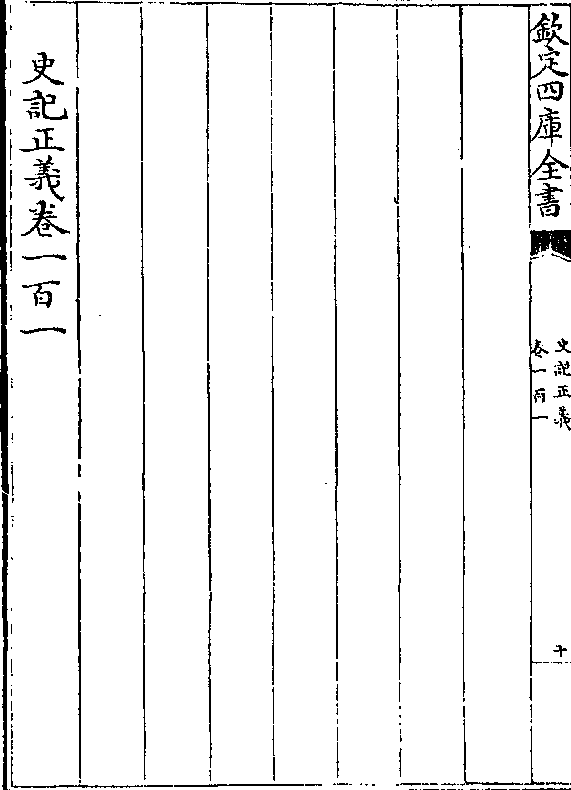 欽定四庫全書
史記正義
卷一百一
十
史記正義卷一百一